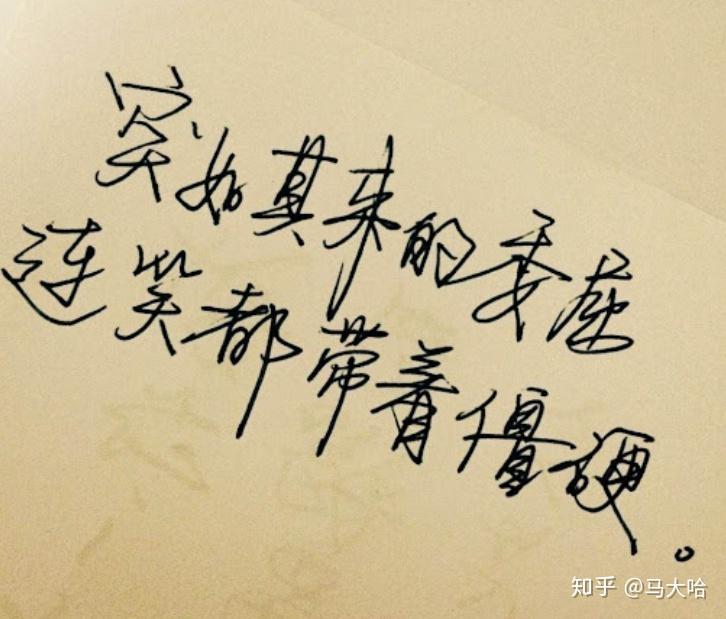 突如其来的委屈
连笑都带着僵硬。
知乎 @马大哈